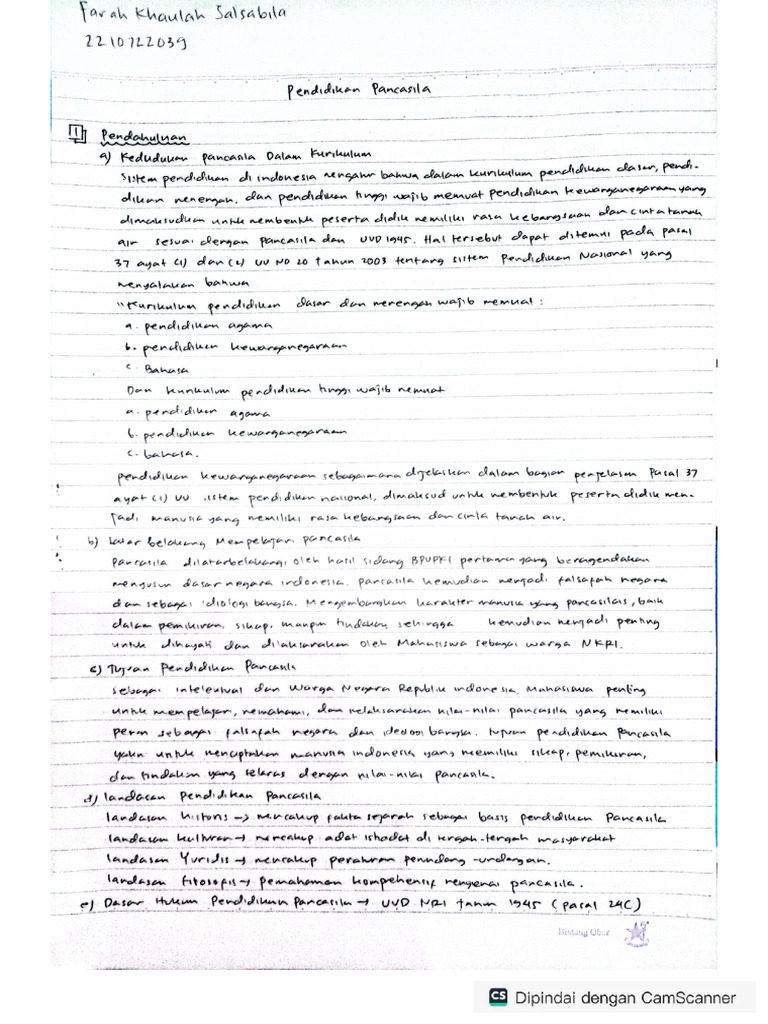 Farah Khaulah Salsabila
2210722039
Pendidikan Pancasila
1 Pendahuluan
a) Kedudukan Pancasila Dalam Kurikulum
Sistem pendidikan di indonesia mengatur bahwa dalam kurikulum pendidikan dasar, pendi-
dikan menengah, dan pendidikan tinggi wajib memuat pendidikan kewarganegaraan yang
dimaksudkan untuk membentuk peserta didik memiliki rasa kebangsaan dan cinta tanah
air sesuai dengan pancasila dan UUD 1945. Hal tersebut dapat ditemui pada pasal
37 ayat (1) dan (2) UU NO 20 tahun 2003 tentang sistem Pendidikan Nasional yang
menyatakan bahwa
"Kurikulum pendidikan dasar dan menengah wajib memuat :
a. pendidikan agama
b. pendidikan kewarganegaraan
c. Bahasa
Dan kurikulum pendidikan tinggi wajib memuat
a. pendidikan agama
b. pendidikan kewarganegaraan
c. bahasa.
pendidikan kewarganegaraan sebagaimana dijelaskan dalam bagian penjelasan Pasal 37
ayat (1) UU sistem pendidikan nasional, dimaksud untuk membentuk peserta didik men-
jadi manusia yang memiliki rasa kebangsaan dan cinta tanah air.
b) Latar belakang Mempelajari pancasila
Pancasila dilatarbelakangi oleh hasil sidang BPUPKI pertama yang beragendakan
menyusun dasar negara indonesia. pancasila kemudian menjadi falsafah negara
dan sebagai idiologi bangsa. Mengembangkan karakter manusia yang pancasilais, baik
dalam pemikiran, sikap, maupun tindakan sehingga kemudian menjadi penting
untuk dihayati dan dilaksanakan oleh Mahasiswa sebagai warga NKRI.
c) Tujuan Pendidikan Pancasila
sebagai intelektual dan Warga Negara Republik indonesia, Mahasiswa penting
untuk mempelajari, memahami, dan melaksanakan nilai-nilai pancasila yang memiliki
peran sebagai falsafah negara dan ideologi bangsa. tujuan pendidikan Pancasila
yakni untuk menciptakan manusia indonesia yang memiliki sikap, pemikiran,
dan tindakan yang selaras dengan nilai-nilai pancasila.
d) landasan Pendidikan Pancasila
landasan historis → mencakup fakta sejarah sebagai basis pendidikan Pancasila
landasan kultural → mencakup adat istiadat di tengah-tengah masyarakat
landasan Yuridis → mencakup peraturan perundang-undangan.
landasan filosofis → pemahaman komprehensif mengenai pancasila.
e) Dasar Hukum Pendidikan Pancasila → UUD NRI tahun 1945 (pasal 24C)
Bintang Obor
CS Dipindai dengan CamScanner